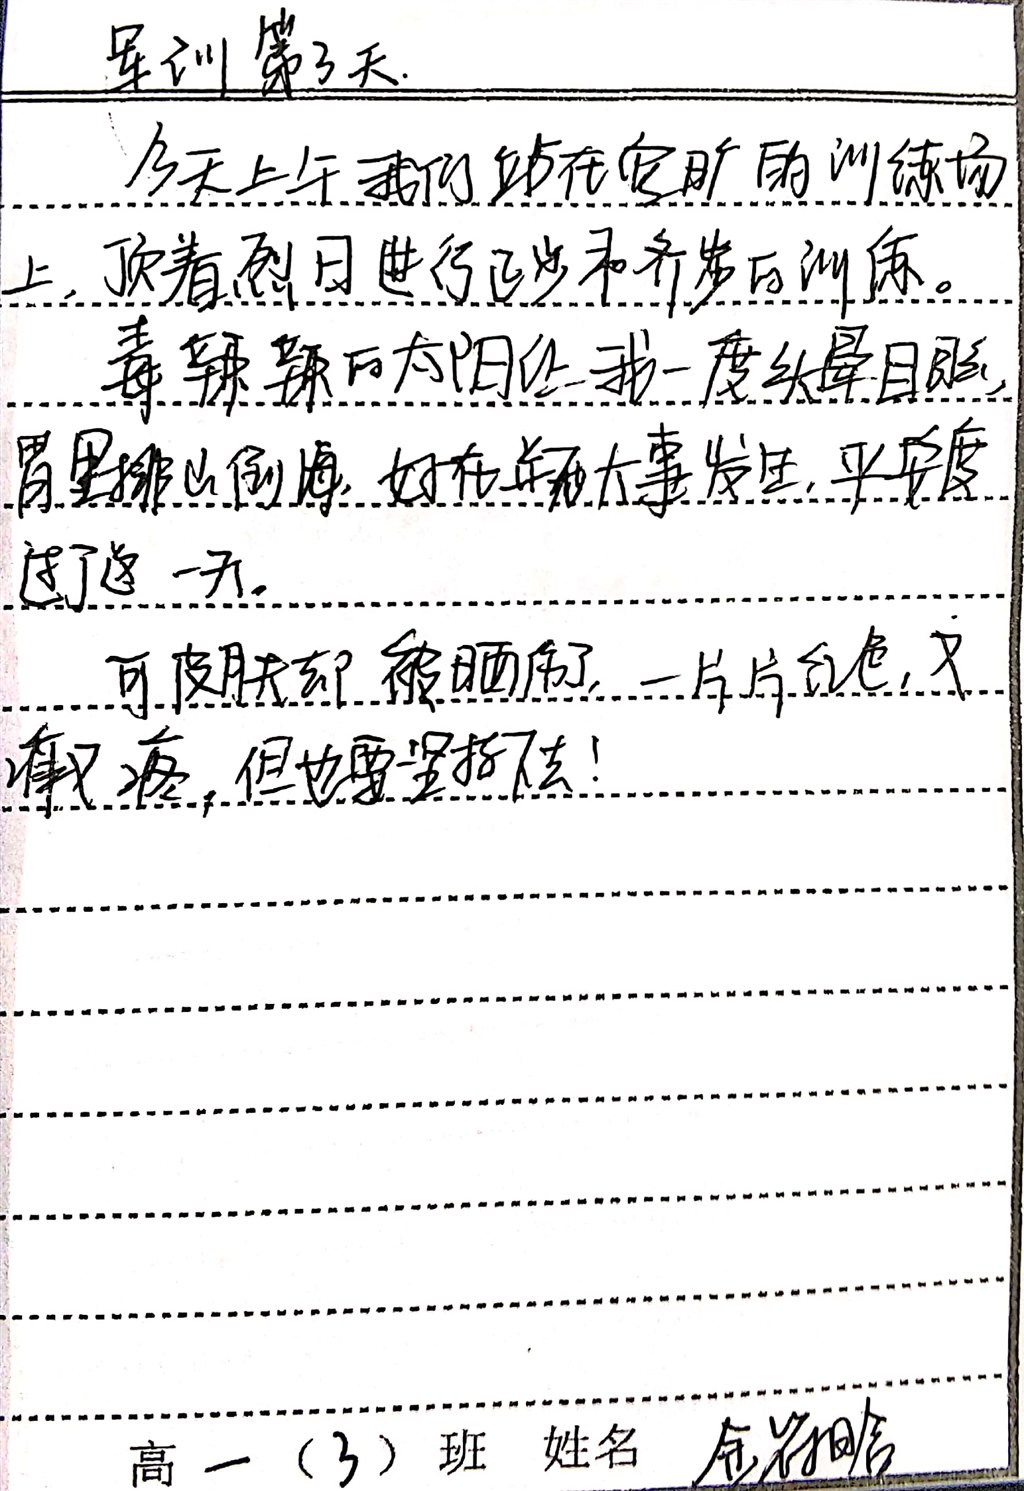 军训第3天.
今天上午我们站在空旷的训练场
上,顶着烈日进行正步和齐步的训练。
毒辣辣的太阳让我一度头晕目眩,
胃里排山倒海,好在无大事发生,平安度
过了这一天。
可皮肤却被晒伤了,一片片红色,又
痒又疼,但也要坚持下去!
高一(3)班 姓名 金